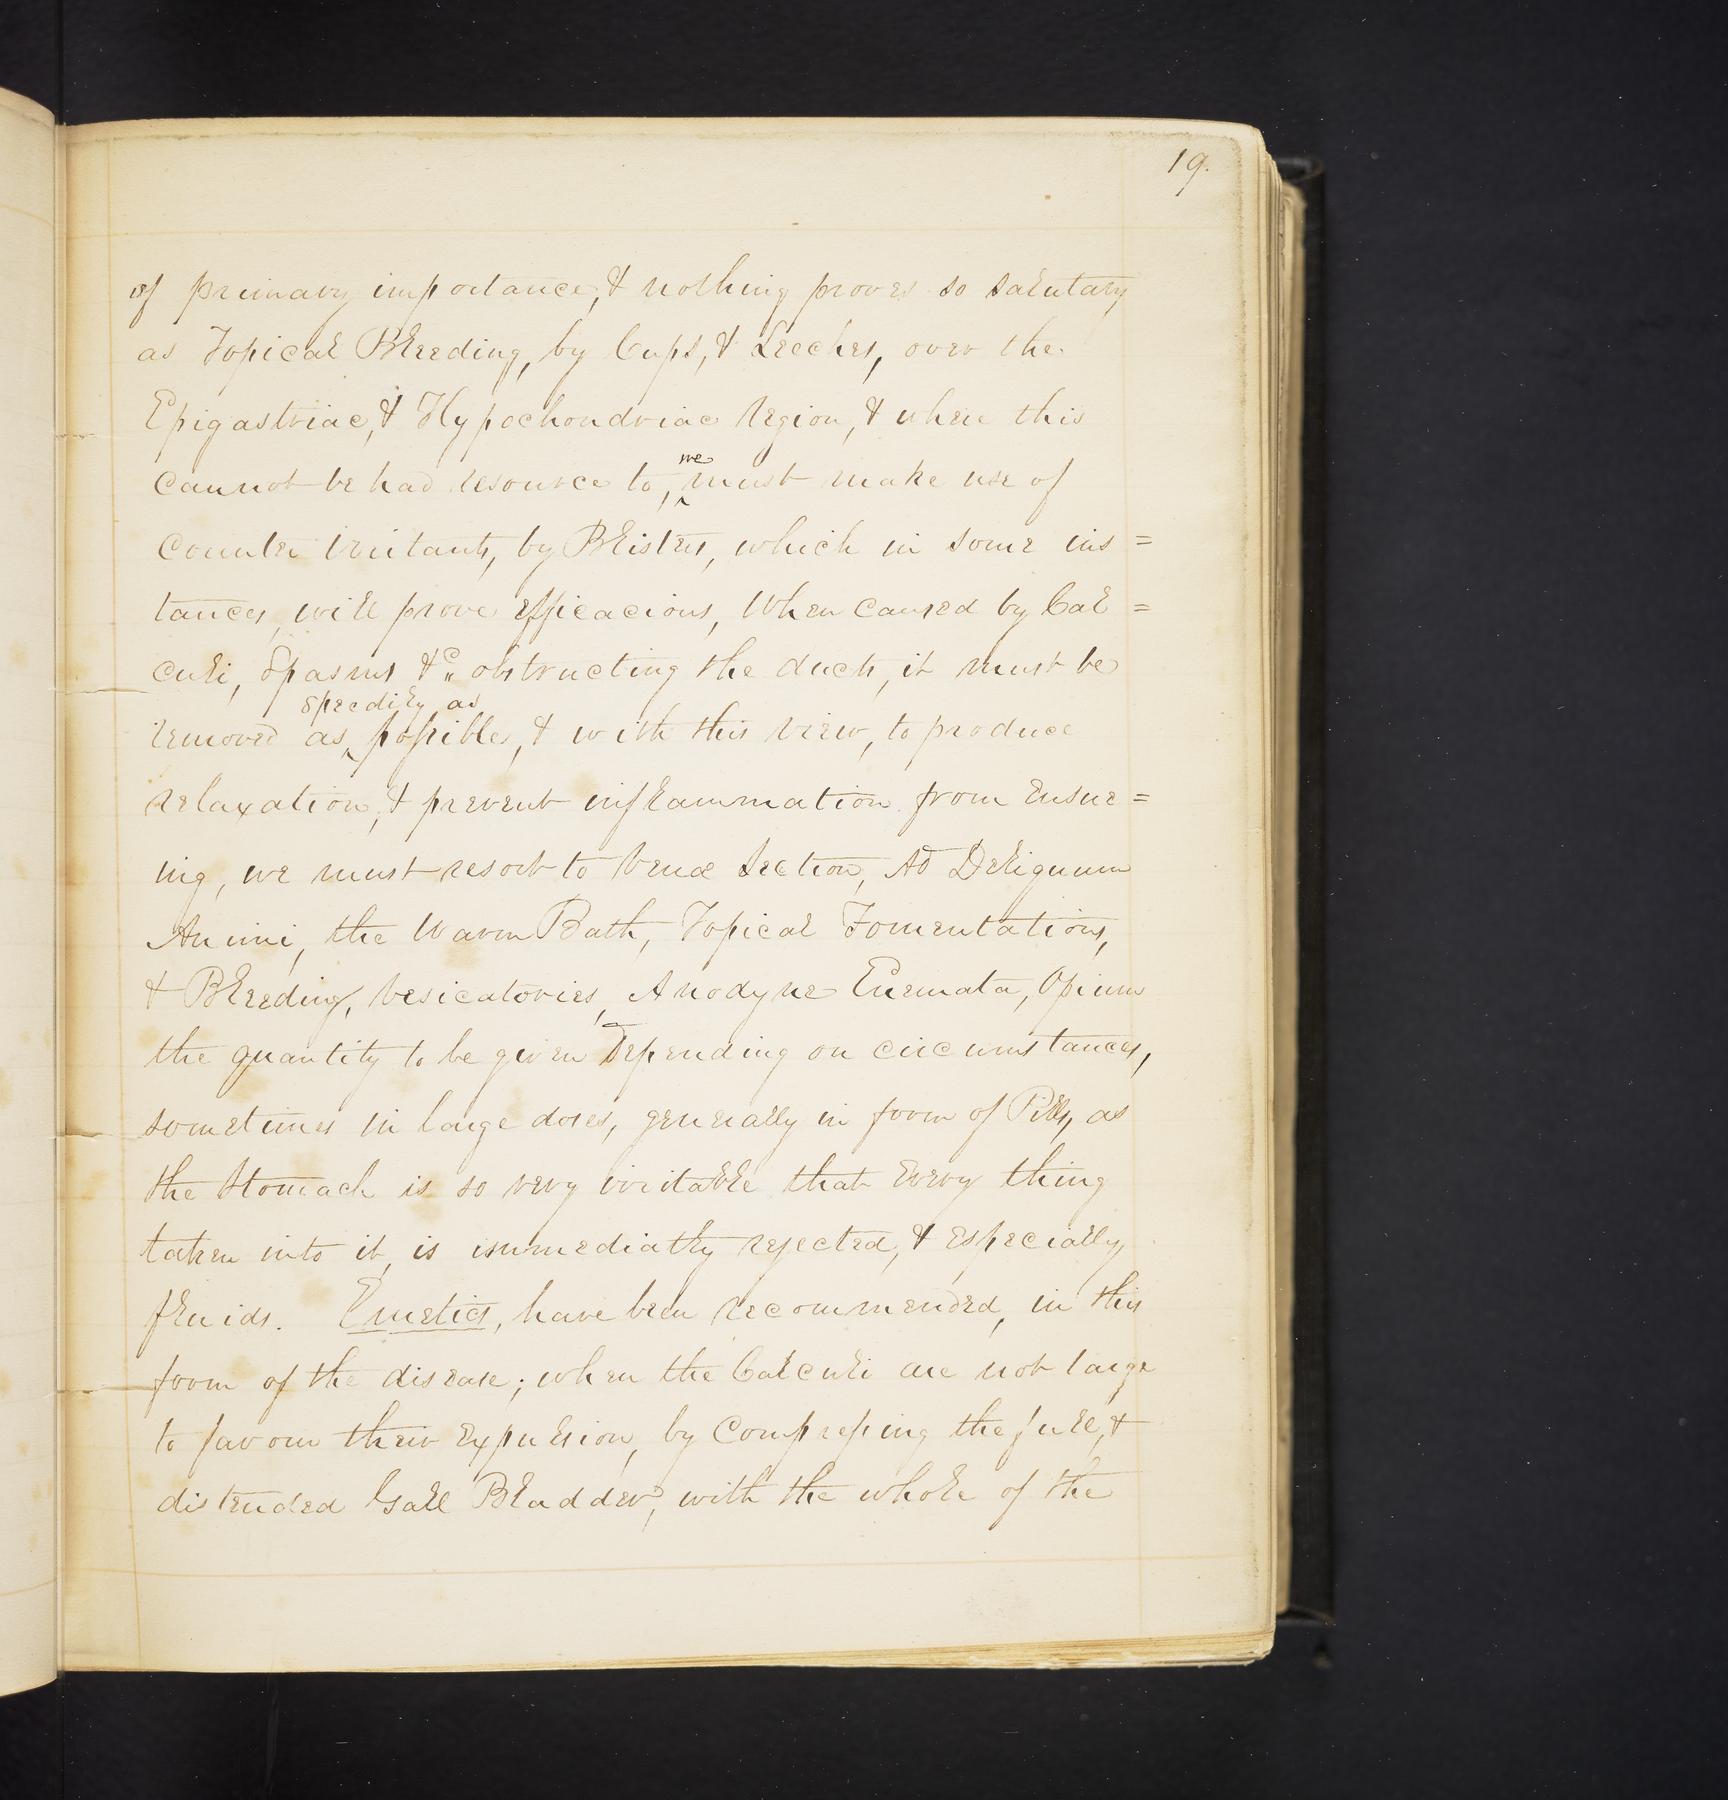 19.
of primary importance, & nothing proves so salutary
as Topical Bleeding, by Cups, & Leeches, over the
Epigastriac, & Hypochondriac region, & where this
cannot be had resource to, we must make use of
Counter Irritants, by Blisters, which in some ins=
tances, will prove efficacious, When caused by Cal=
culi, Spasms &c. obstructing the ducts, it must be
removed as speedily as possible, & with this view, to produce
relaxation, & prevent inflammation from ensue=
ing, we must resort to Venæ Section, Ad Deliquum
Animi, the Warm Bath, Topical Fomentations,
& Bleeding, Vesicatories, Anodyne Enemata, Opium
the quantity to be given Depending on circumstances,
sometimes in large doses, generally in form of Pills, as
the Stomach is so very irritable that every thing
taken into it, is immediatly rejected, & especially,
fluids. Emetics, have been recommended, in this
form of the disease; when the Calculi are not large
to favour their expulsion, by Compressing the full, &
distended Gall Bladder, with the whole of the